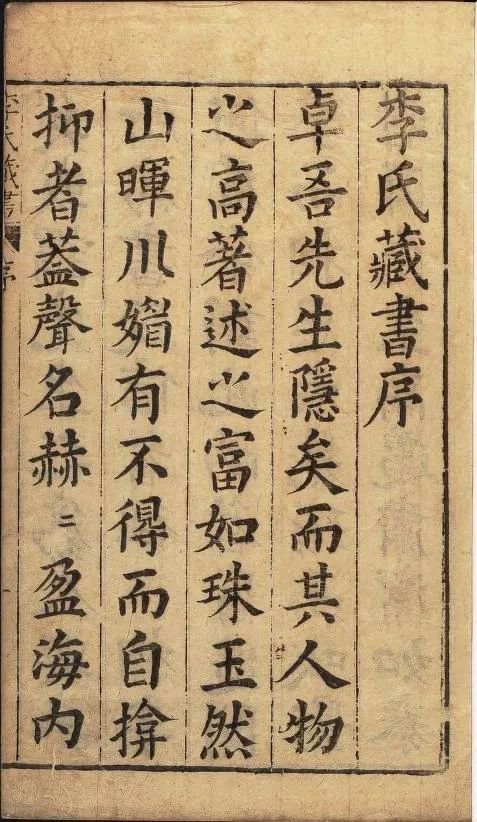 李氏藏書序
卓吾先生隱矣而其人物
之高著述之富如珠玉然
山暉川媚有不得而自揜
抑者蓋聲名赫〻盈海内
李氏藏書 序